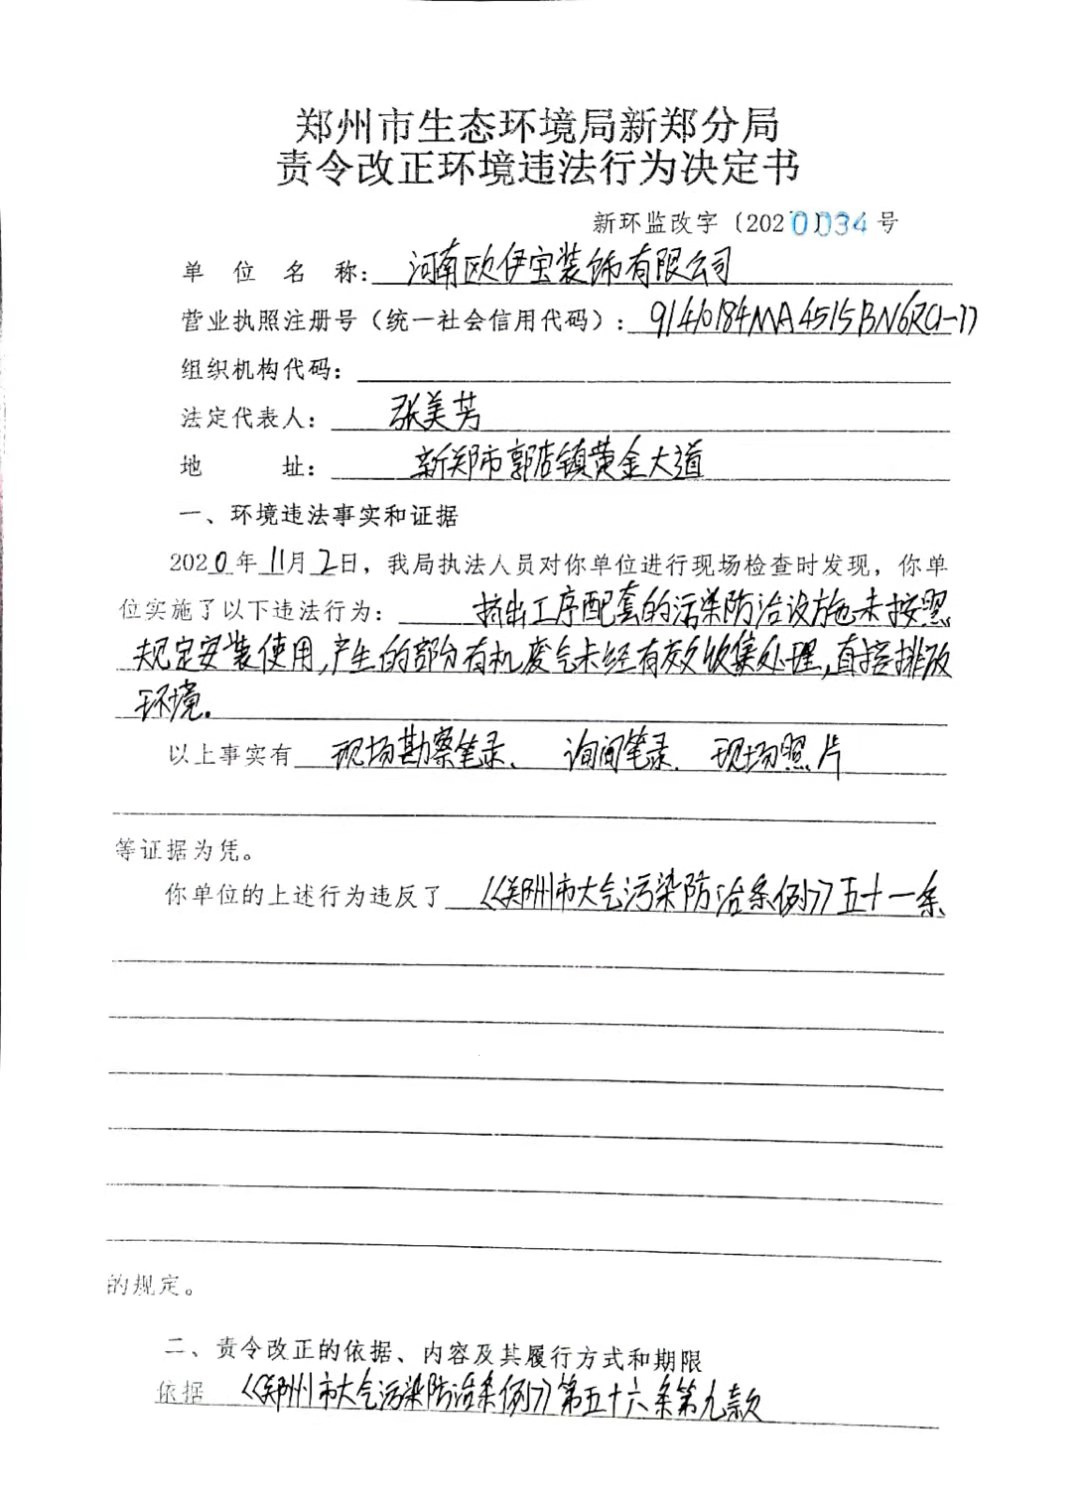 郑州市生态环境局新郑分局
责令改正环境违法行为决定书
新环监改字〔2020〕034号
单位名称：河南欧伊宝装饰有限公司
营业执照注册号（统一社会信用代码）：91410184MA4515BN6R(1-1)
组织机构代码：
法定代表人：张美芳
地址：新郑市郭店镇黄金大道
一、环境违法事实和证据
2020年11月2日，我局执法人员对你单位进行现场检查时发现，你单
位实施了以下违法行为：挤出工序配套的污染防治设施未按照
规定安装使用，产生的部分有机废气未经有效收集处理，直接排放
环境。
以上事实有现场勘察笔录、询问笔录、现场照片
等证据为凭。
你单位的上述行为违反了《郑州市大气污染防治条例》五十一条
的规定。
二、责令改正的依据、内容及其履行方式和期限
依据《郑州市大气污染防治条例》第五十六条第九款